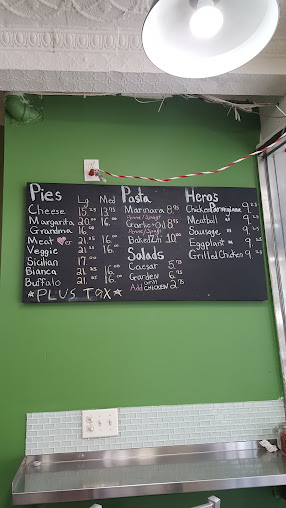 Pies Lg Med
Cheese 15.25 13.75
Margarita 20.00 16.00
Grandma 16.00
Meat 21.25 16.00
Veggie 21.25 16.00
Sicilian 17.00
Bianca 21.25 16.00
Buffalo 21. 16.
*PLUS TAX*
Pasta
Marinara 8.95
Penne/Spagt
Garlic+Oil 8
Penne/Spagt
Baked Ziti 10.00
Salads
Caesar 5.75
Garden 6.95
Add CHICKEN 2.75
Hero's
Chicken Parmegiana 9.
Meatball " 9.
Sausage " 9.
Eggplant " 9.25
Grilled Chicken 9.25